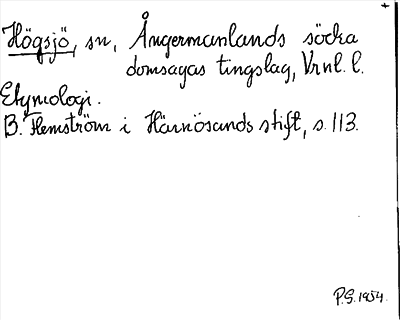 Högsjö, sn, Ångermanlands södra
domsagas tingslag, Vrnl. l.
Etymologi.
B. Flemström i Härnösands stift, s. 113.
P.G. 1954.